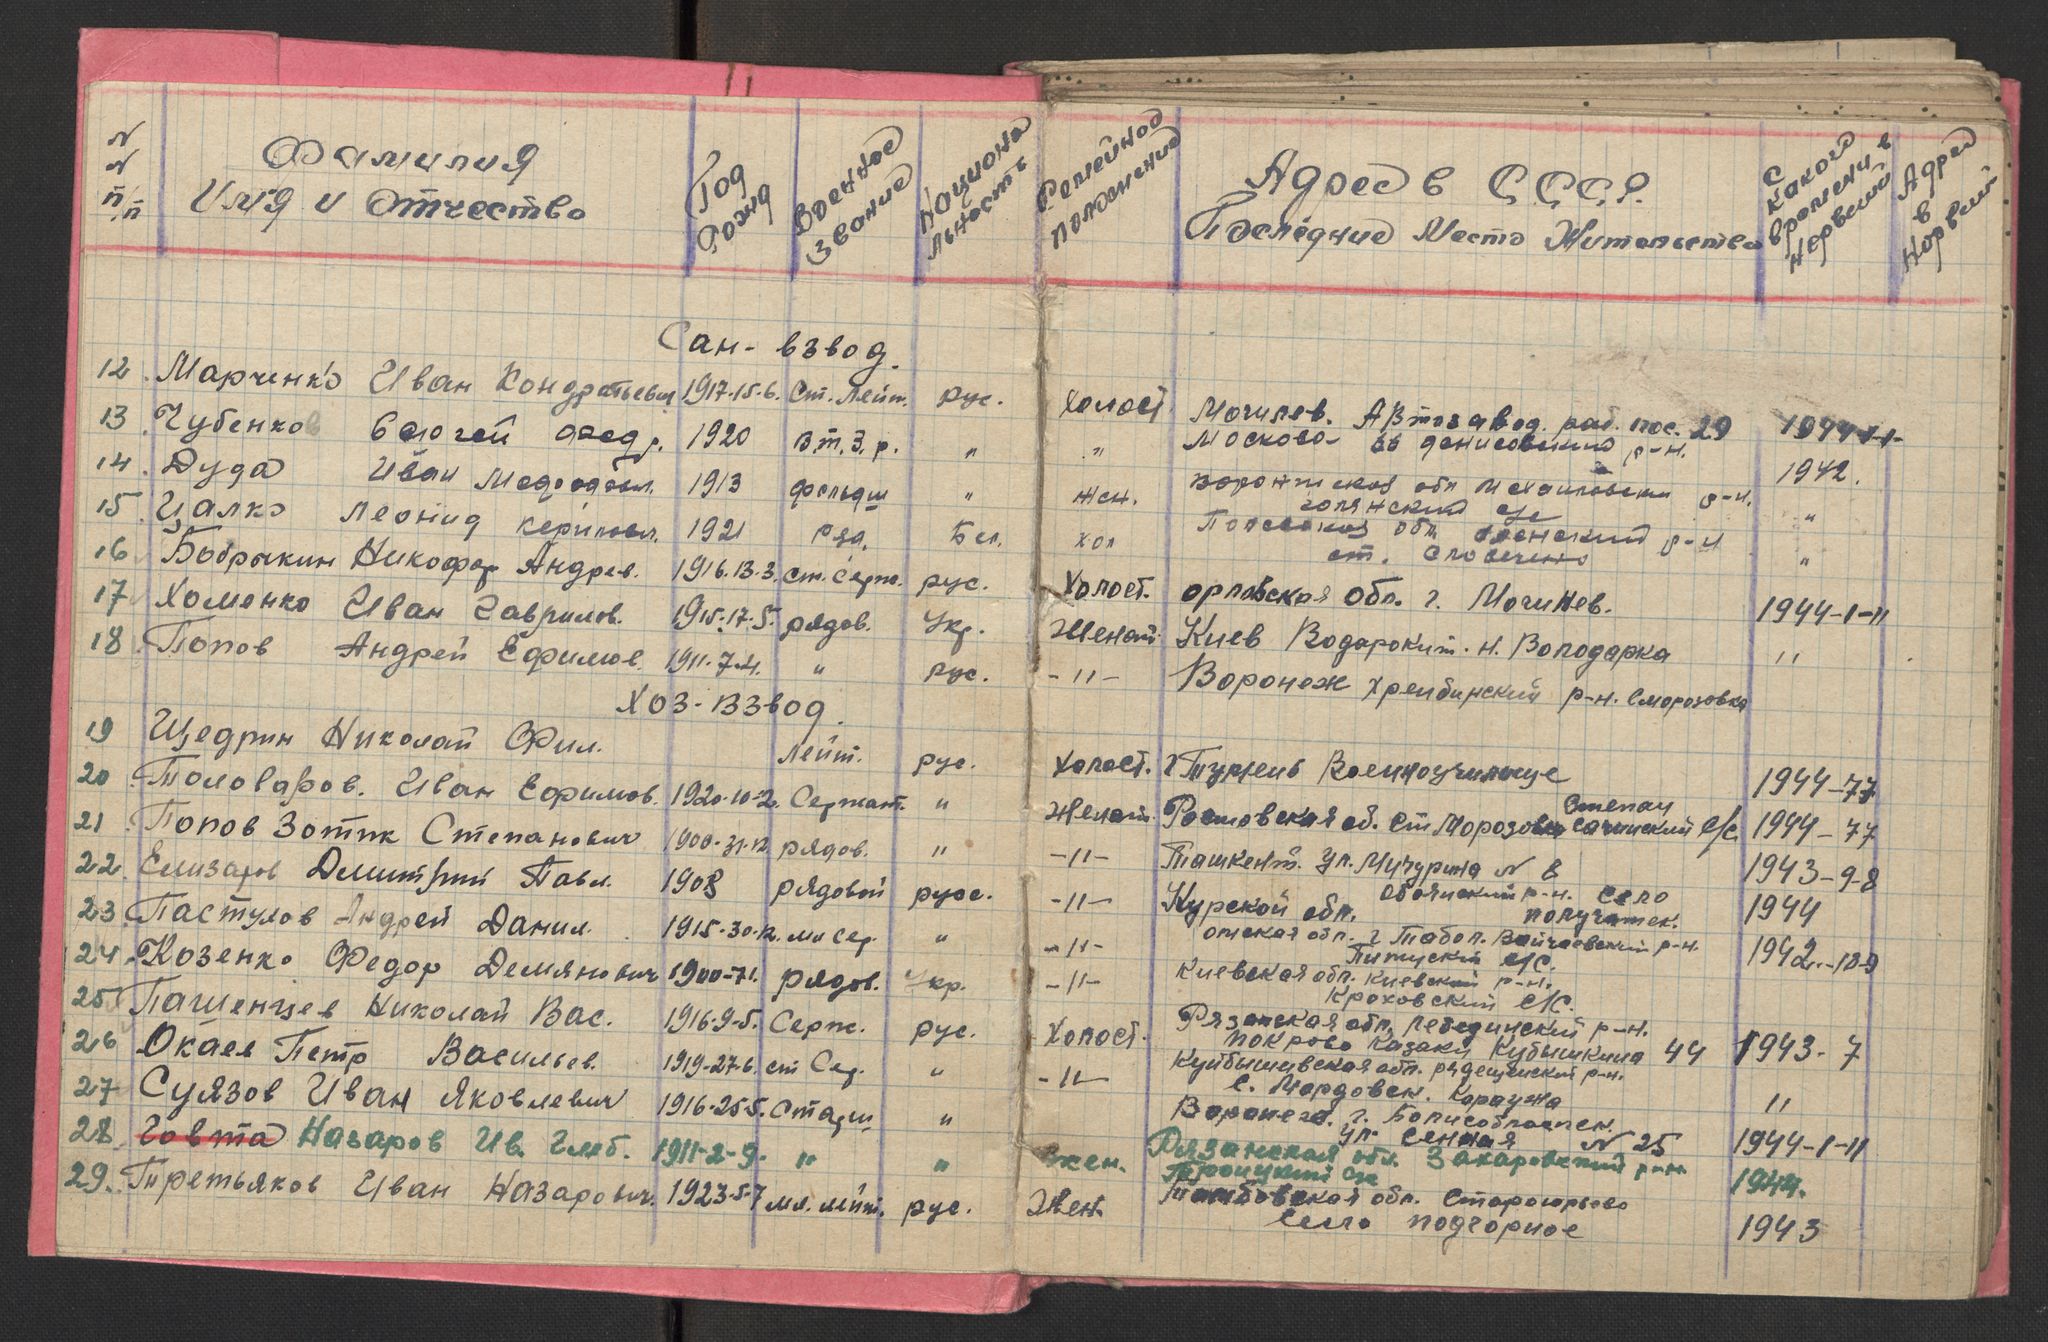 N N п/п Фамилия Имя и Отчество Год рожд Военное звание Национальность Семейное положение Адрес в С.С.С.Р. Последние Место Жительства С какого времени в Норвегии Адрес в Норвегии
Сан-взвод.
12. Марченко Иван Кондратьевич 1917-15-6. Ст. Лейт. рус. Холост Могилев. Автозавод. раб. пос. 29 1944-1-
13. Чубенков Федр. 1920 " " Москова р-н. 1942.
14. Дуда Иван 1913 фельдш " жен. обл р-н. "
15. Цалко Леонид 1921 ряд. Бел. хол Полесская обл. р-н ст. Словечно "
16 Бобрыкин Никофор Андрев. 1916.13.3. ст. Серж. рус. Холост. орловская обл. г. 1944-1-11
17 Хоменко Иван Гаврилов. 1915.17.5. рядов. Укр. Женат. Киев Володарка "
18. Попов Андрей Ефимов. 1911-7-4. " рус. -"- Воронеж р-н.
Хоз-взвод.
19 Щедрин Николай Фил. Лейт. рус. Холост. г Тюмень Военноучилище 1944-7-7
20. Иван Ефимов. 1920-10-2. Сержант. " Женат. Ростовская об. ст Морозовка Степан с/с. 1944-7-7
21 Попов Зотик Степанович 1900-31-12 рядов. " -"- Ташкент. Ул. Мичурина N 8 1943-9-8
22. Елизаров Дмитрий Павл. 1908 рядовой русс. -"- Курской обл. Обоянский р-н. село 1944
23. Пастухов Андрей Данил. 1915-30-12. мл сер. " -"- омская обл. р-н. с/с. 1942.-18-9
24. Козенко Федор Демянович 1900-7-1. рядов. Укр. -"- Киевская обл. Киевский р-н. Кроховский с/с.
25. Пашенцев Николай Вас. 1916-9-5. Серж. рус. Холост. Рязанская обл. Лебединский р-н. Покрово Казаки Кубышкина 44 1943-7
26 Окаев Петр Васильев. 1919-27-6. ст Сер. " -"- Куйбышевская обл. р-н. с. Мордовск. Карауна "
27 Суязов Иван Яковлевич 1916-25-5. Старш " Воронега. г. Борисоглебск. ул. Сенная N 25 1944-1-11
28. Говта Назаров Ив. Глеб. 1911-2-9. " " жен. Рязанская обл. Захаровский р-н. Троицкий с/с 1944.
29. Третьяков Иван Назарович. 1923-5-7 мл. лейт. рус. Жен. Тамбовская обл. Староюрьево село подгорное 1943